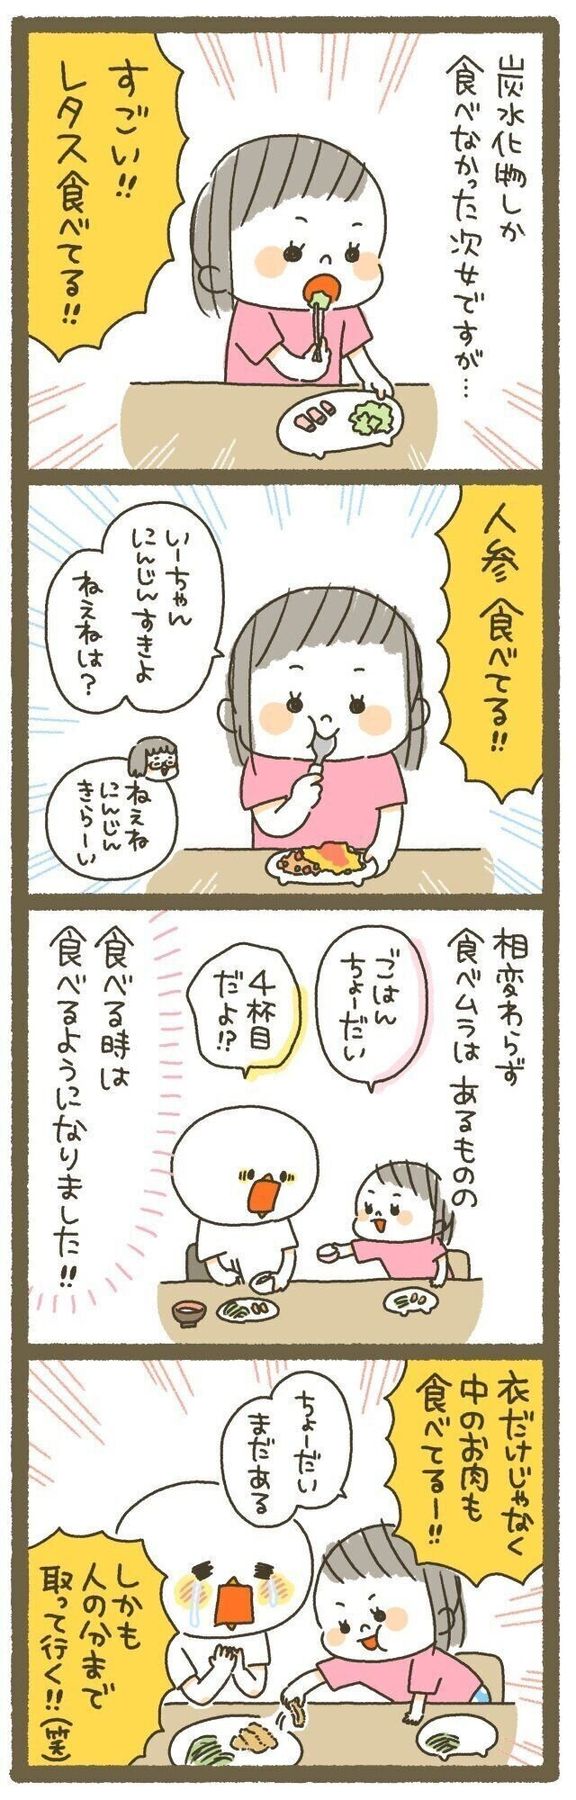 炭水化物しか
食べなかった次女ですが…
すごい!!
レタス食べてる!!
人参 食べてる!!
いーちゃん
にんじんすきよ
ねえねは?
ねえね
にんじん
きらーい
相変わらず
食べムラは あるものの
ごはん
ちょーだい
4杯目
だよ!?
食べる時は
食べるようになりました!!
衣だけじゃなく
中のお肉も
食べてるー!!
ちょーだい
まだある
しかも
人の分まで
取って行く!!(笑)